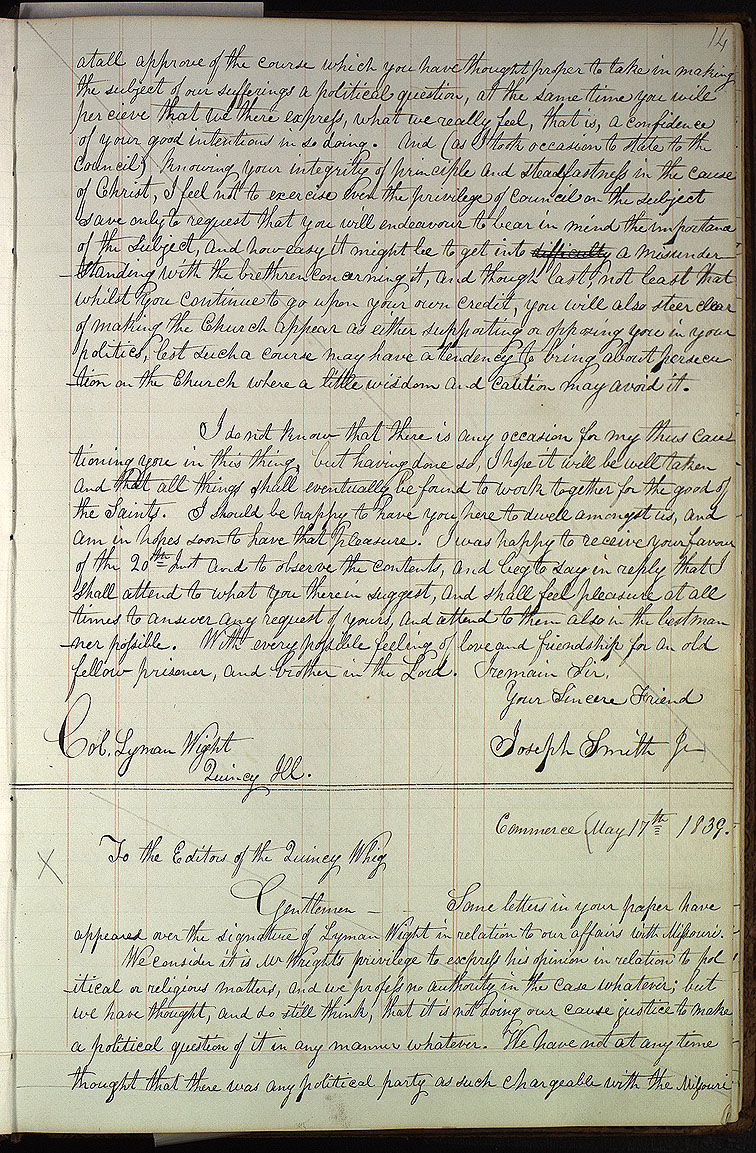 14
atall approve of the course which you have thought proper to take in making
the subject of our sufferings a political question, at the same time you will
percieve that we there express, what we really feel, that is, a confidence
of your good intentions in so doing. And (as I took occasion to state to the
Council) knowing your integrity of principle and steadfastness in the cause
of Christ, I feel not to exercise even the privilege of council on the subject
save only to request that you will endeavour to bear in mind the importance
of the subject, and how easy it might be to get into difficulty a misunder-
-standing with the brethren concerning it, and though last, not least that
whilst you continue to go upon your own credit, you will also steer clear
of making the Church appear as either supporting or opposing you in your
politics, lest such a course may have a tendency to bring about persecu
-tion on the Church where a little wisdom and caution may avoid it.
I do not know that there is any occasion for my thus cau-
tioning you in this thing, but having done so, I hope it will be well taken
and that all things shall eventually be found to work together for the good of
the Saints. I should be happy to have you here to dwell amongst us, and
am in hopes soon to have that pleasure. I was happy to receive your favour
of the 20th Inst and to observe the contents, and beg to say in reply that I
shall attend to what you therein suggest, and shall feel pleasure at all
times to answer any request of yours, and attend to them also in the best man
-ner possible. With every possible feeling of love and friendship for an old
fellow prisoner, and brother in the Lord. I remain Sir,
Your Sincere Friend
Col. Lyman Wight Joseph Smith Jr
Quincy Ill.
Commerce May 17th 1839.
X To the Editors of the Quincy Whig
Gentlemen — Some letters in your paper have
appeared over the signature of Lyman Wight in relation to our affairs with Missouri.
We consider it is Mr Wrights privilege to express his opinion in relation to pol
-itical or religious matters, and we profess no authority in the case whatever; but
we have thought, and do still think, that it is not doing our cause justice to make
a political question of it in any manner whatever. We have not at any time
thought that there was any political party as such chargeable with the Missouri